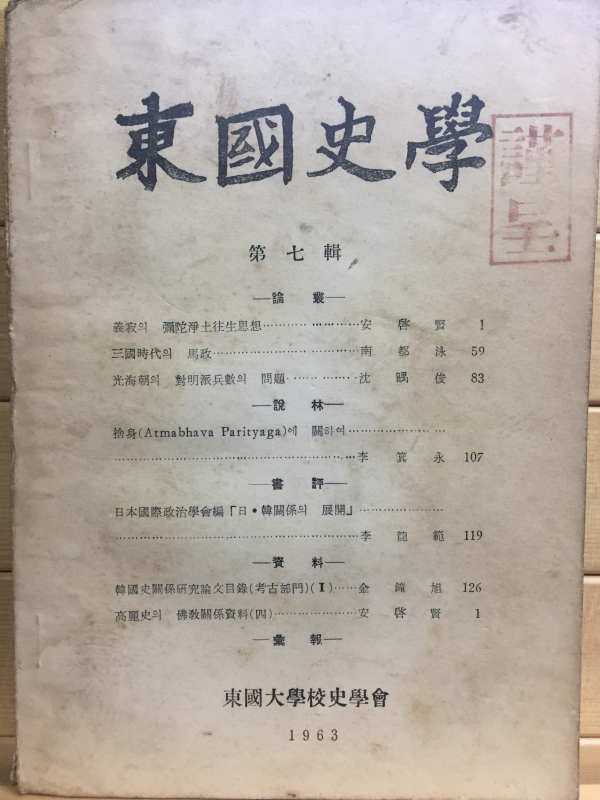 東國史學
謹呈
第七輯
—論 叢—
義寂의 彌陀淨土往生思想………… ……………安 啓 賢 1
三國時代의 馬政…………………………………南 都 泳 59
光海朝의 對明派兵數의 問題…………………沈 㬂 俊 83
—說 林—
捨身(Atmabhava Parityaga)에 關하여…………………… …
………………………………………………………李 箕 永 107
—書 評—
日本國際政治學會編「日•韓關係의 展開」…………………
………………………………………………………李 龍 範 119
—資 料—
韓國史關係硏究論文目錄(考古部門)(I)……金 鐘 旭 126
高麗史의 佛敎關係資料(四)…………………安 啓 賢 1
—彙 報—
東國大學校史學會
1963